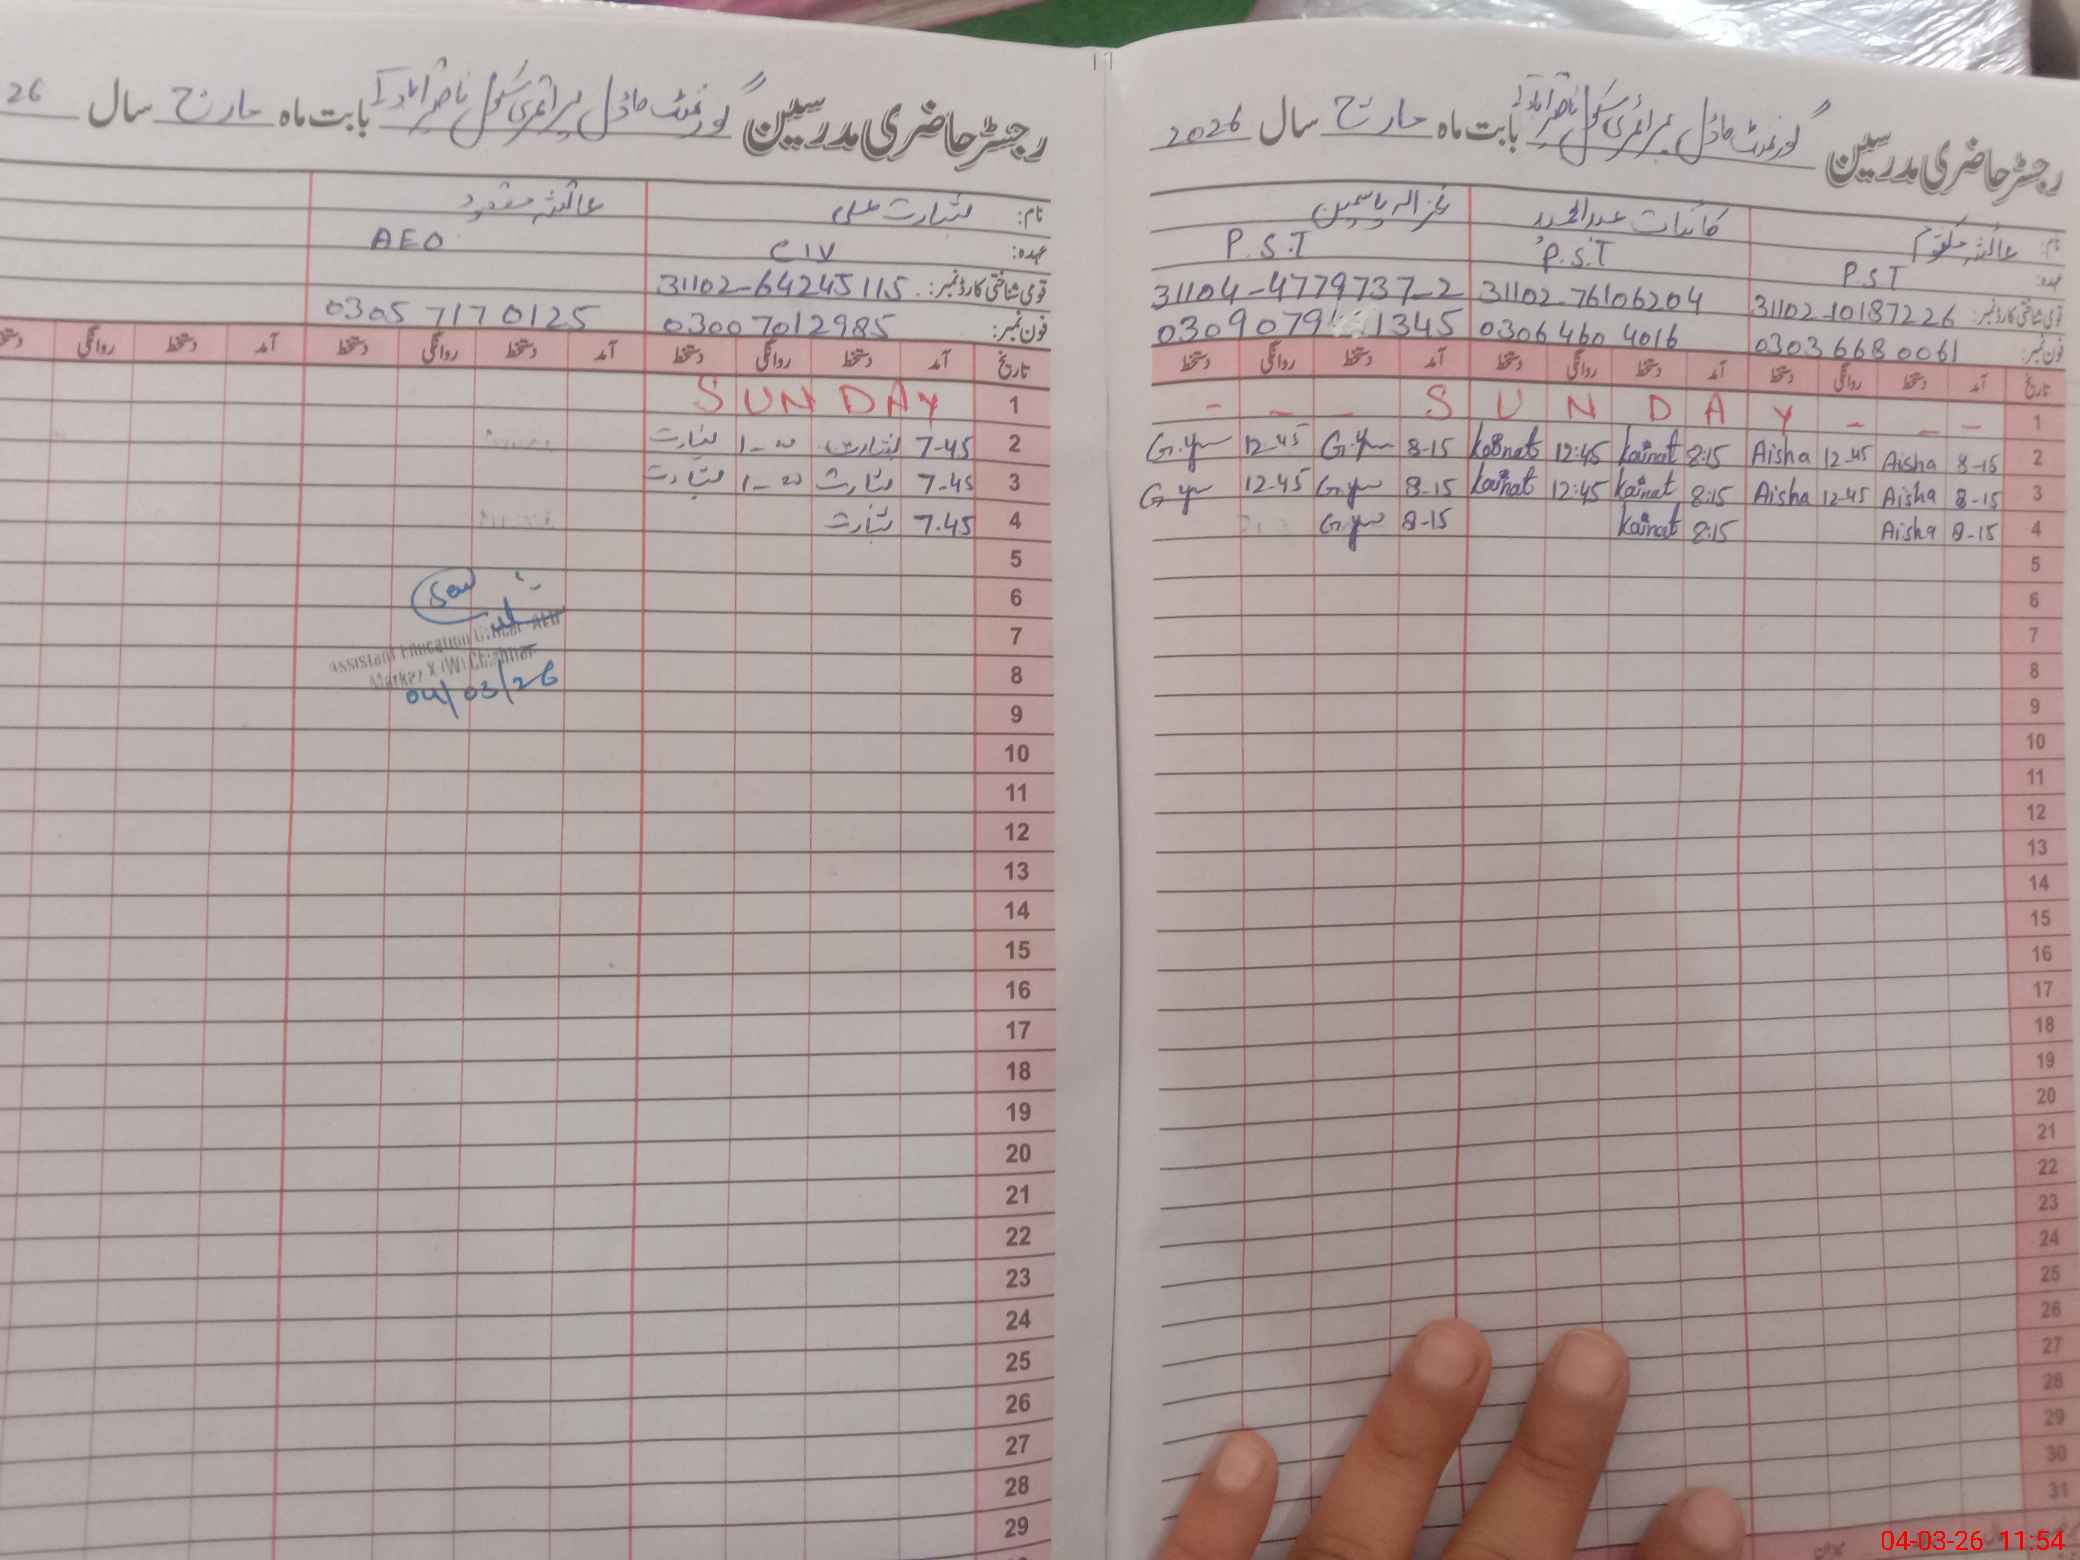 رجسٹر حاضری مدرسین گورنمنٹ ماڈل پرائمری سکول ناصر آباد بابت ماہ مارچ سال 2026
نام: عائشہ کلثوم کائنات عبدالحمید غزالہ یاسمین
عہدہ: P.S.T P.S.T P.S.T
قومی شناختی کارڈ نمبر: 31102-10187226 31102-76106204 31104-4779737-2
فون نمبر: 03036680061 03064604016 0309079 1345
تاریخ آمد دستخط روانگی دستخط آمد دستخط روانگی دستخط آمد دستخط روانگی دستخط
1 - - - S U N D A Y - - -
2 8-15 Aisha 12-45 Aisha 8:15 Kainat 12:45 Kainat 8-15 G.Y 12-45 G.Y
3 8-15 Aisha 12-45 Aisha 8:15 Kainat 12:45 Kainat 8-15 G.Y 12-45 G.Y
4 8-15 Aisha 8:15 Kainat 8-15 G.Y
5
6
7
8
9
10
11
12
13
14
15
16
17
18
19
20
21
22
23
24
25
26
27
28
29
30
31
رجسٹر حاضری مدرسین گورنمنٹ ماڈل پرائمری سکول ناصر آباد بابت ماہ مارچ سال 26
نام: بشارت علی عائشہ مقصود
عہدہ: C IV AEO
قومی شناختی کارڈ نمبر: 31102-64245115
فون نمبر: 03007012985 03057170125
تاریخ آمد دستخط روانگی دستخط آمد دستخط روانگی دستخط آمد دستخط روانگی دستخط
1 SUNDAY
2 7-45 بشارت 1-00 بشارت
3 7-45 بشارت 1-00 بشارت
4 7.45 بشارت
5
6
7
8
9
10
11
12
13
14
15
16
17
18
19
20
21
22
23
24
25
26
27
28
29
Assistant Education Officer AEO
Markaz X (W)
04/03/26
04-03-26 11:54